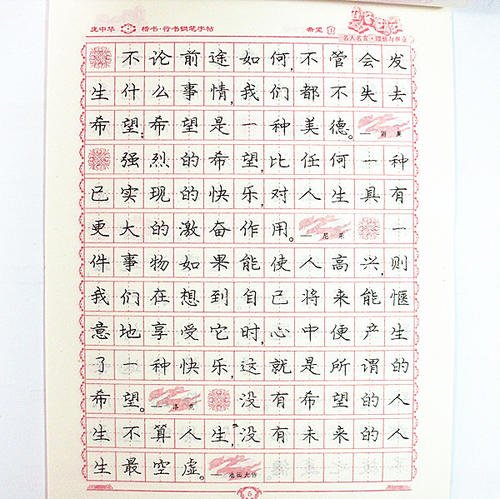 庞中华 楷书·行书钢笔字帖 希望 名人名言·理想与
不论前途如何,不管会发
生什么事情,我们都不失去
希望;希望是一种美德。—
强烈的希望,比任何一种
已实现的快乐,对人生具有
更大的激奋作用。—尼采 一
件事物如果能使人高兴,则
我们在想到自己将来能惬
意地享受它时,心中便产生
了一种快乐,这就是所谓的
希望。—洛克 没有希望的人
生不算人生,没有未来的人
生最空虚。—池田大作
6